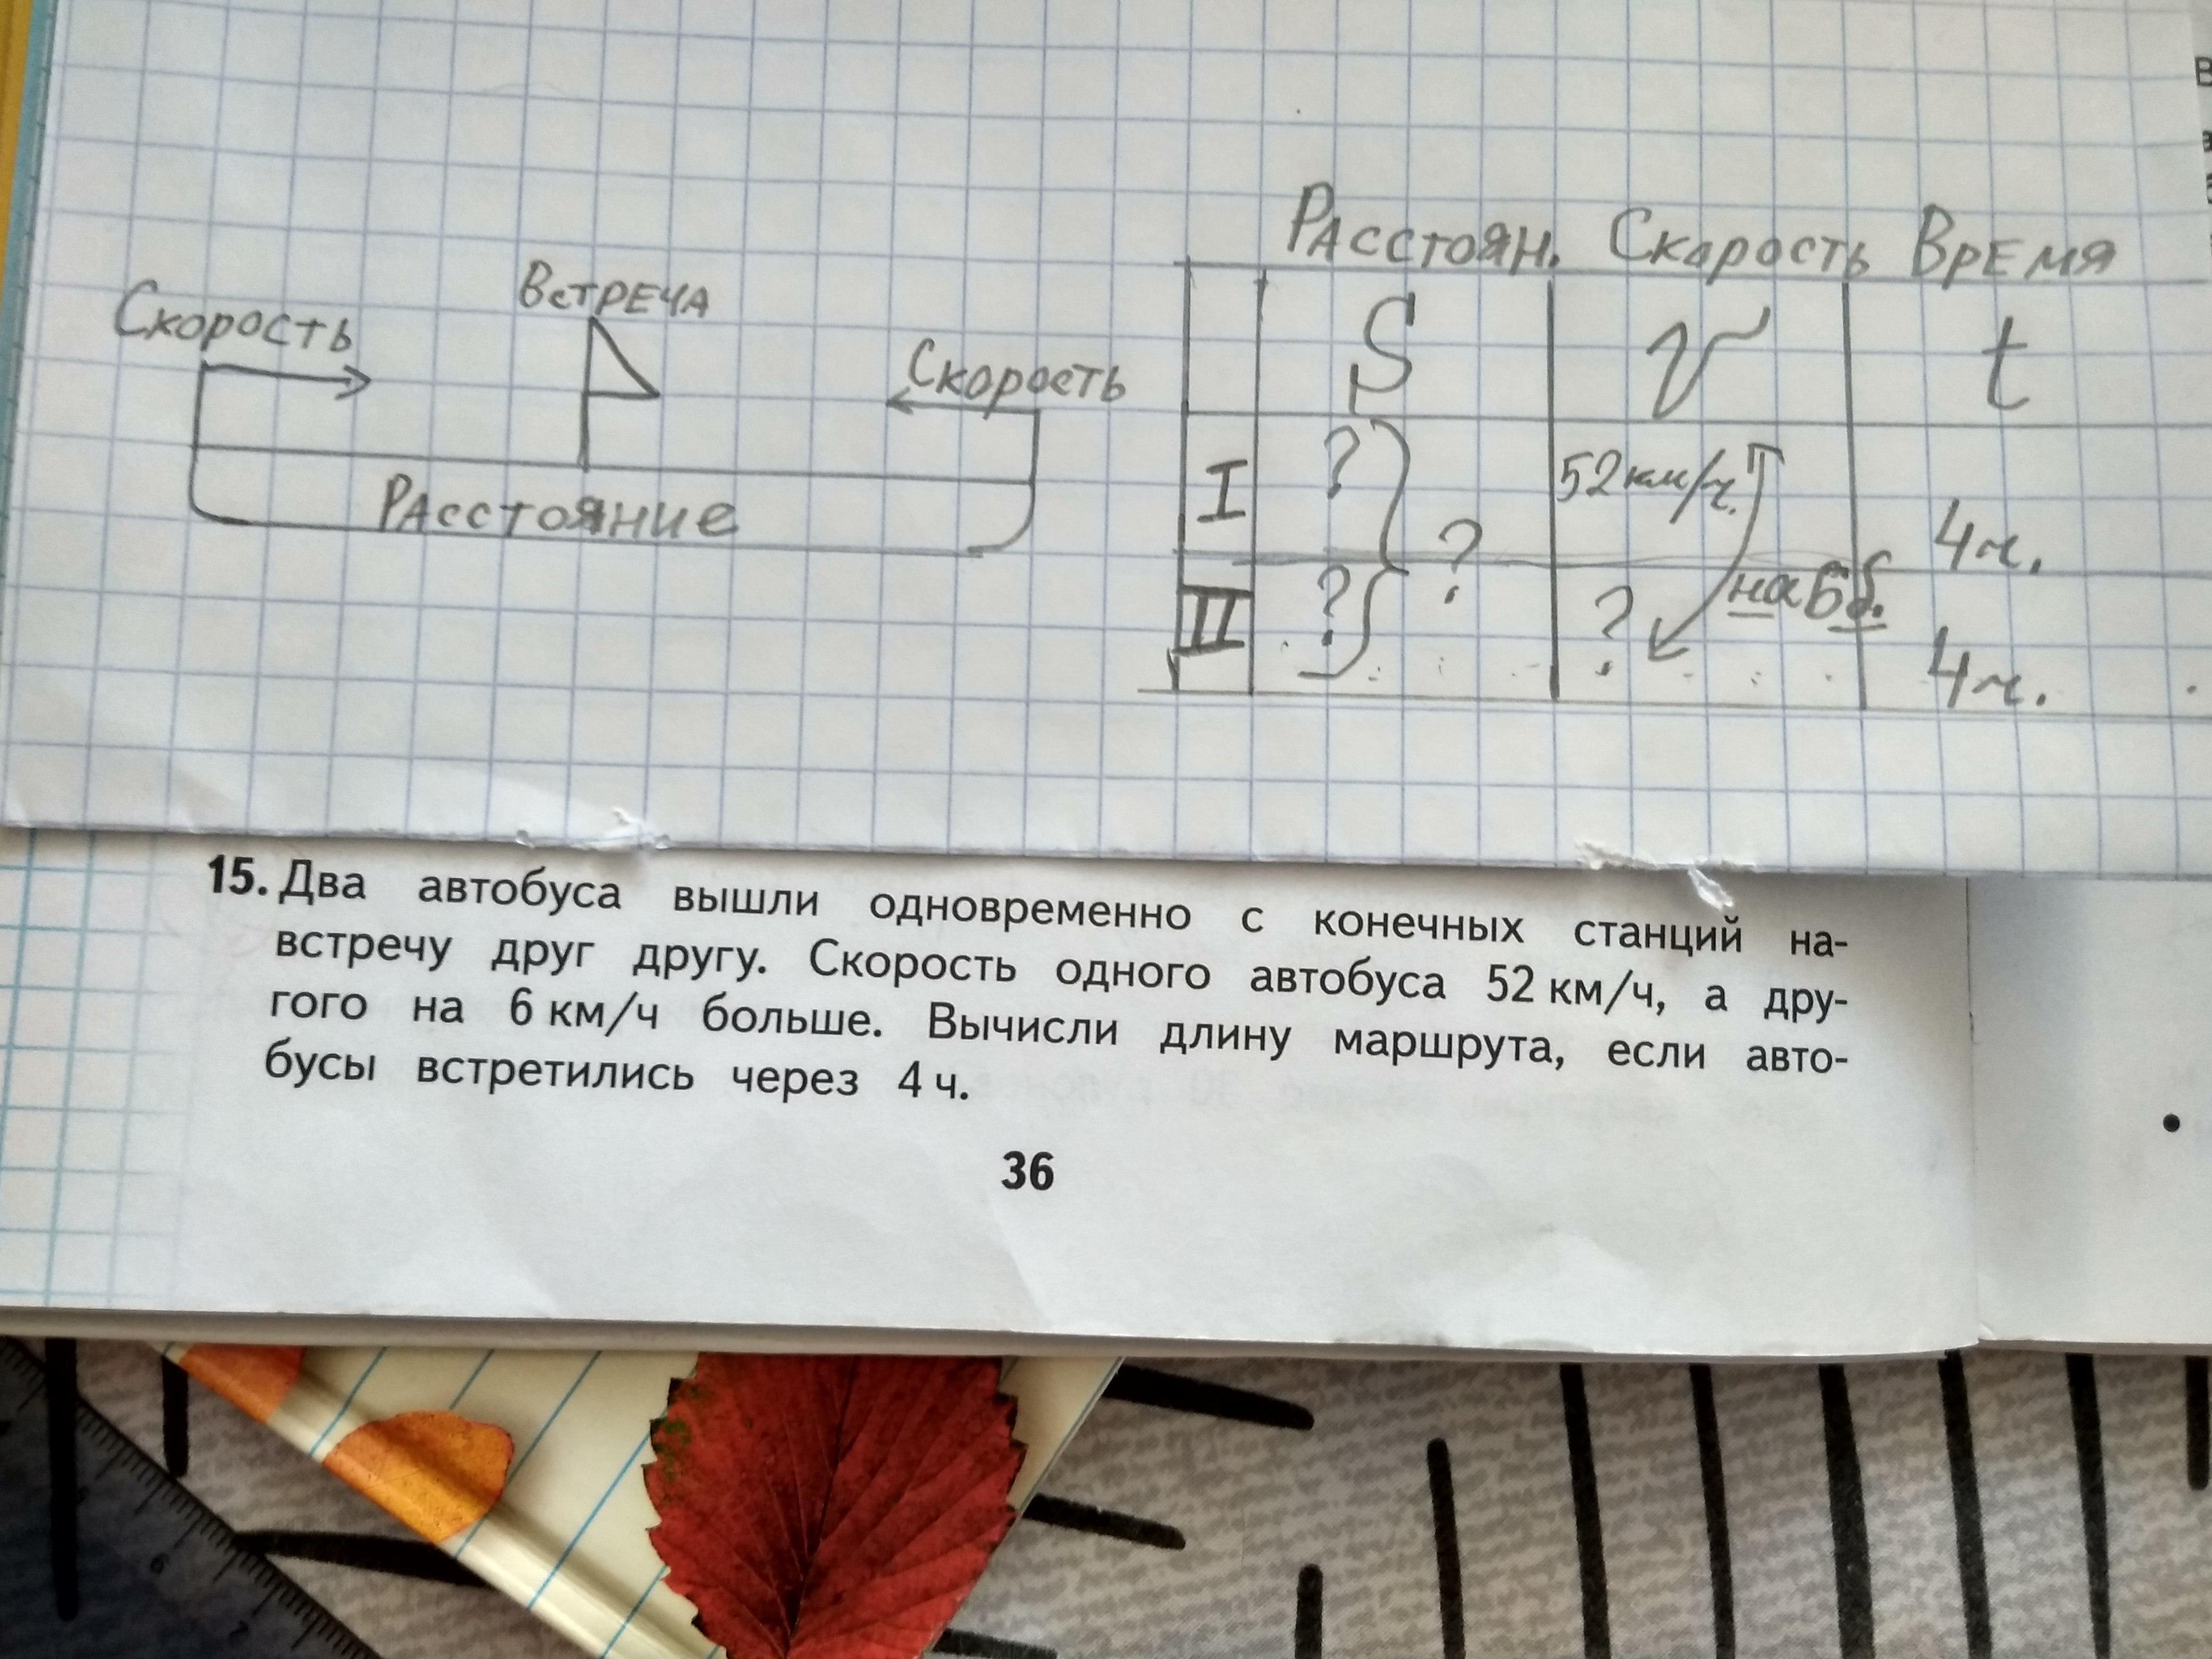 Расстоян. Скарость Время
S v t
I ? 52 км/ч. 4 ч.
?
II ? ? на 6 б. 4 ч.
Скорость
Встреча
Скорость
Расстояние
15. Два автобуса вышли одновременно с конечных станций на-
встречу друг другу. Скорость одного автобуса 52 км/ч, а дру-
гого на 6 км/ч больше. Вычисли длину маршрута, если авто-
бусы встретились через 4 ч.
36